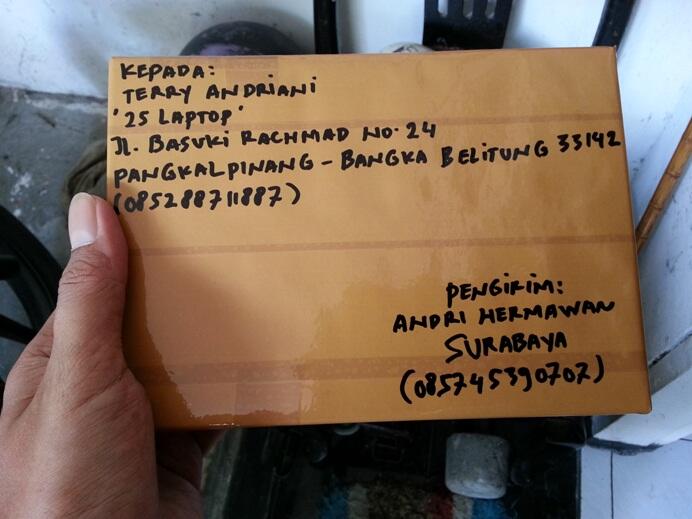 KEPADA:
TERRY ANDRIANI
'25 LAPTOP'
Jl. BASUKI RACHMAD NO. 24
PANGKALPINANG - BANGKA BELITUNG 33142
(085288711887)
PENGIRIM:
ANDRI HERMAWAN
SURABAYA
(085745390707)